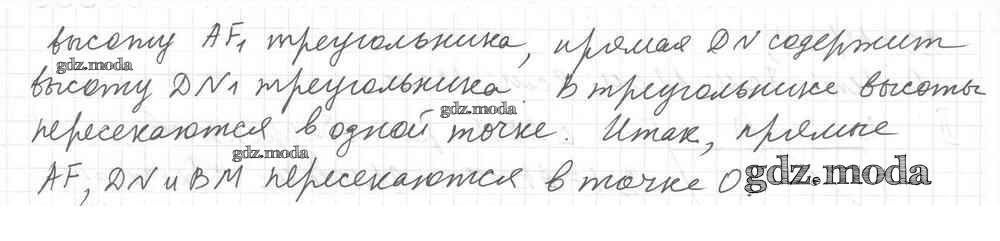 высоту AF₁ треугольника, прямая DN содержит
gdz.moda
высоту DN₁ треугольника. В треугольнике высоты
gdz.moda
пересекаются в одной точке. Итак, прямые
gdz.moda
AF, DN и BM пересекаются в точке O.
gdz.moda